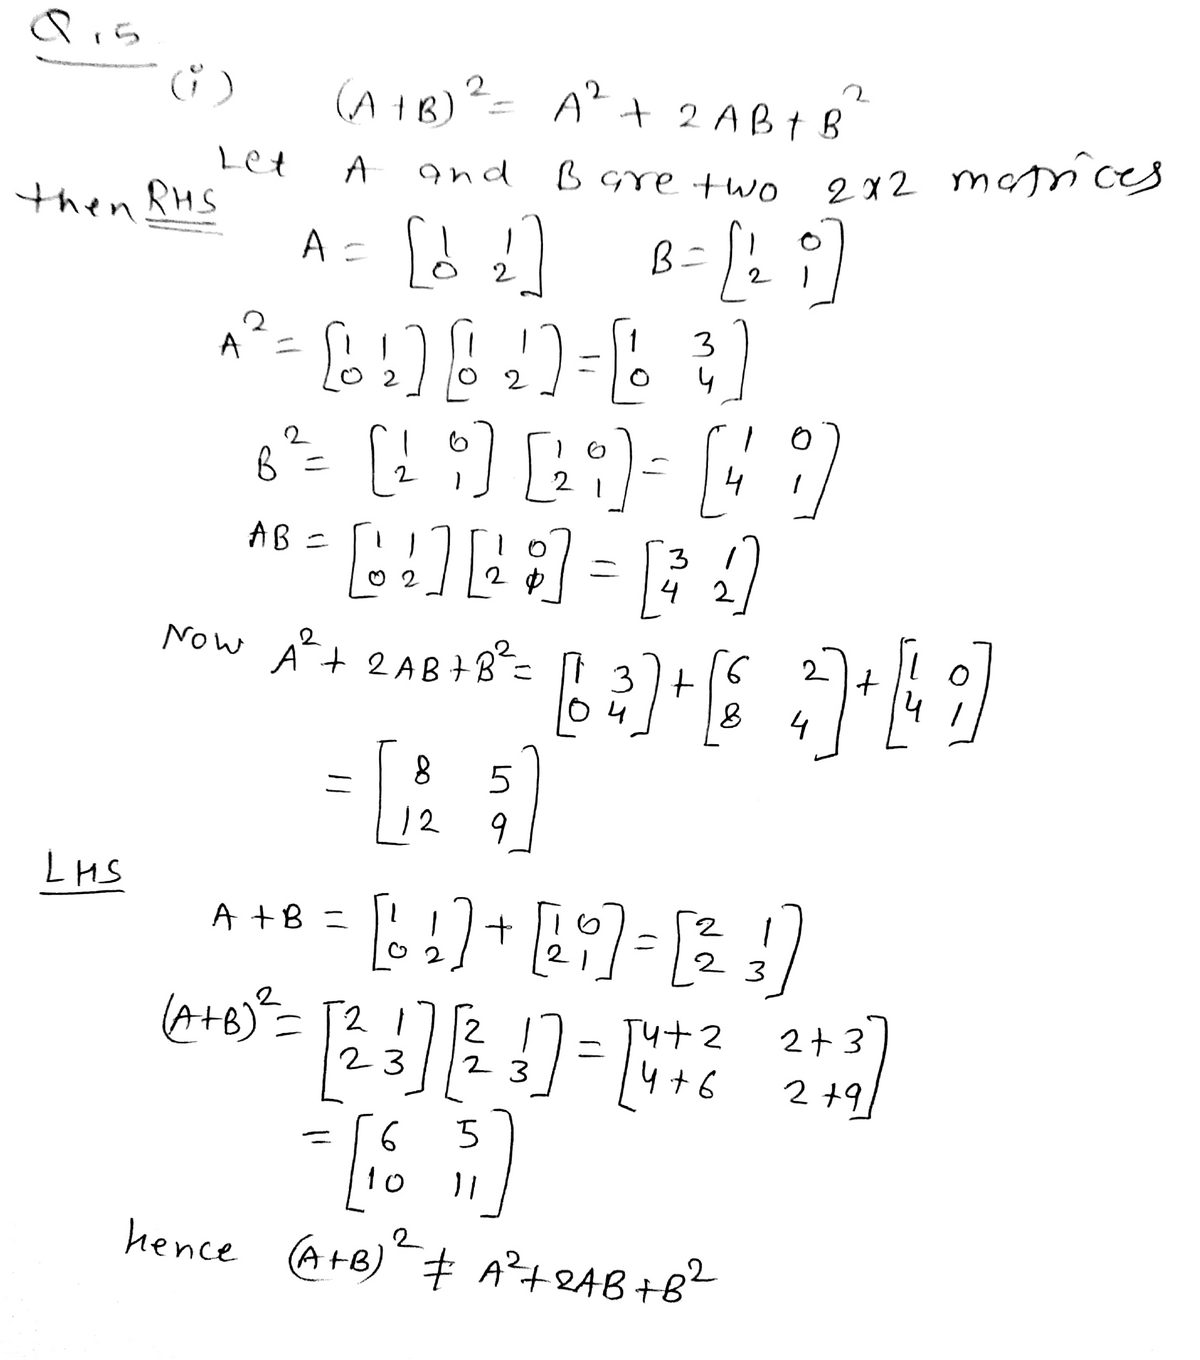 Q.5
(i) (A+B)² = A² + 2AB + B²
Let A and B are two 2x2 matrices
then RHS
A = [1 1; 0 2] B = [1 0; 2 1]
A² = [1 1; 0 2] [1 1; 0 2] = [1 3; 0 4]
B² = [1 0; 2 1] [1 0; 2 1] = [1 0; 4 1]
AB = [1 1; 0 2] [1 0; 2 1] = [3 1; 4 2]
Now A² + 2AB + B² = [1 3; 0 4] + [6 2; 8 4] + [1 0; 4 1]
= [8 5; 12 9]
LHS
A + B = [1 1; 0 2] + [1 0; 2 1] = [2 1; 2 3]
(A+B)² = [2 1; 2 3] [2 1; 2 3] = [4+2 2+3; 4+6 2+9]
= [6 5; 10 11]
hence (A+B)² ≠ A²+2AB+B²